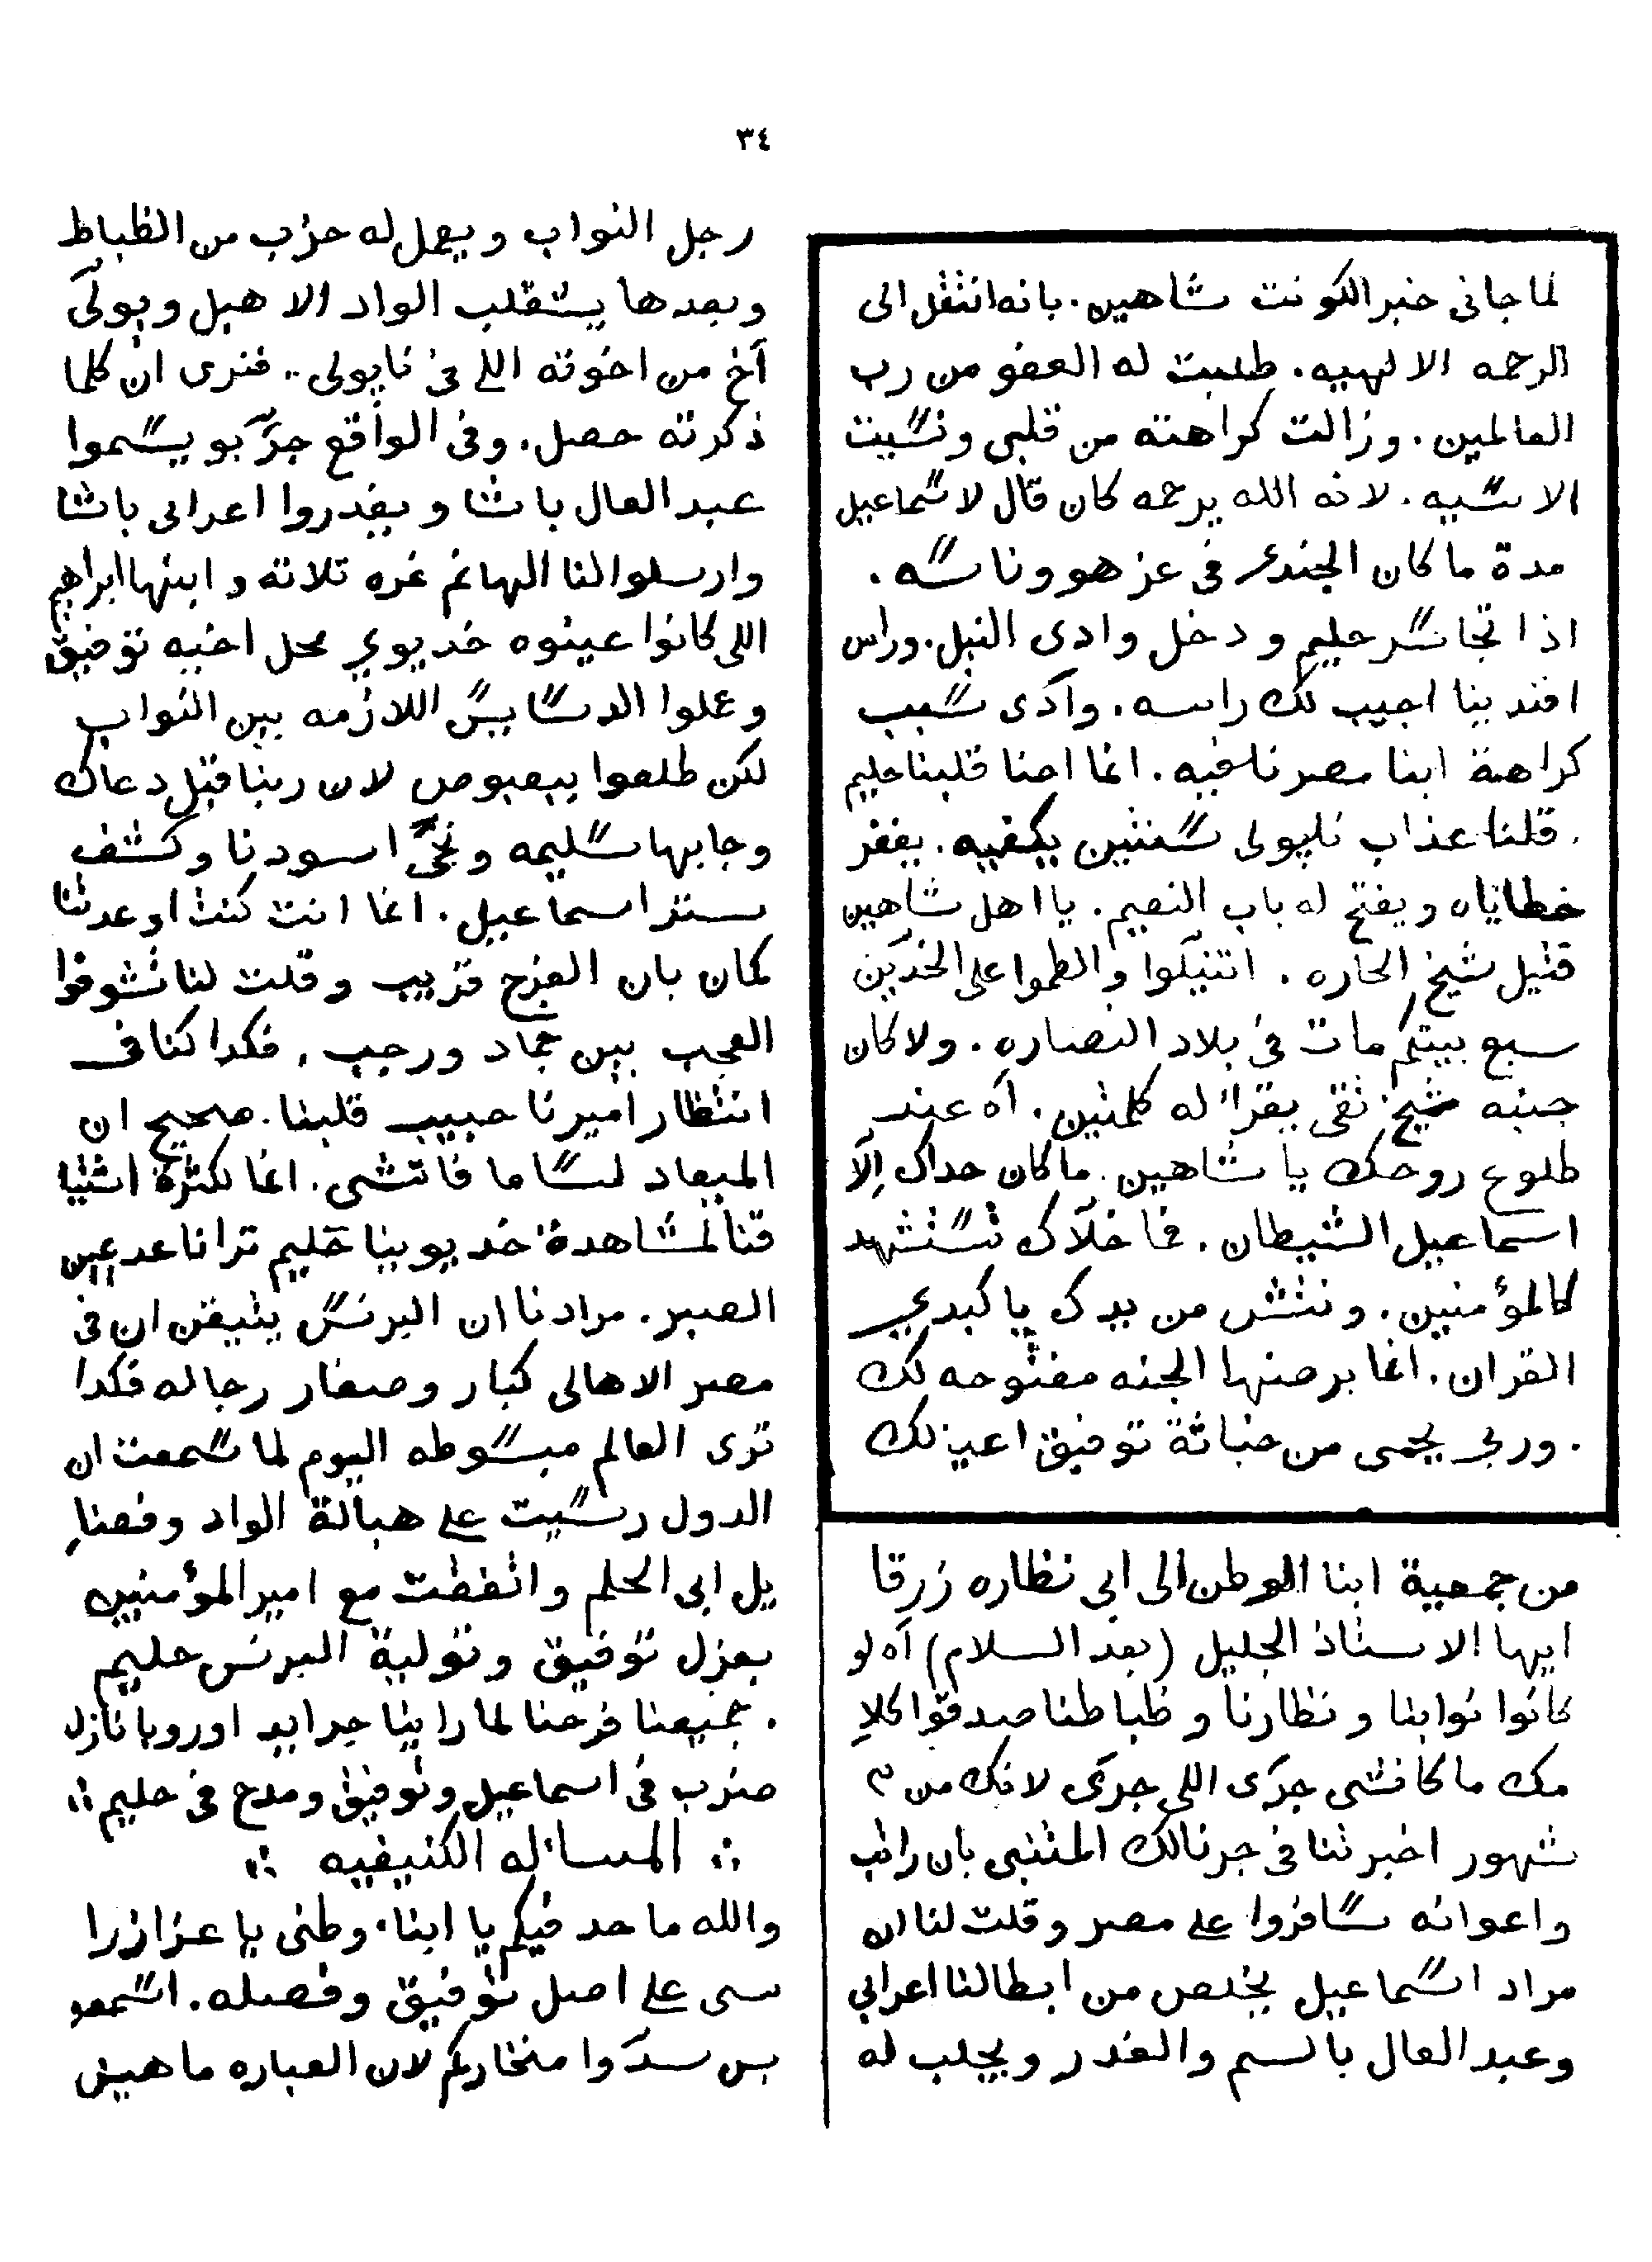 ٣٤
لما جانى خبر الكونت شاهين. بانه انتقل الى
الرحمه الالهيه. طلبت له العفو من رب
العالمين. وزالت كراهته من قلبى ونسيت
الاسيه. لانه الله يرحمه كان قال لاسماعيل
مدة ما كان الجندى فى عز هو وناسه.
اذا تجاسر حليم ودخل وادى النيل. وراس
افندينا اجيب لك راسه. وآدى سبب
كراهة ابنا مصرنا فيه. انما احنا قلبنا حليم
. قلنا عذاب نابولى سنتين يكفيه. يغفر
خطاياه ويفتح له باب النعيم. يا اهل شاهين
قتيل شيخ الحاره. اتنيلوا والطموا على الخدّين
سبع بيتكم مات فى بلاد النصاره. ولا كان
جنبه شيخ تقى يقرا له كلمتين. آه عند
طلوع روحك يا شاهين. ما كان حداك إلّا
اسماعيل الشيطان. فما خلّاك تستشهد
كالمؤمنين. ونتش من يدك يا كبدى
القران. انما برضها الجنه مفتوحه لك
. وربى يحمى من خباثة توفيق اعيز لك
من جمعية ابنا الوطن الى ابى نظاره زرقا
ايها الاستاذ الجليل (بعد السلام) آه لو
كانوا نوابنا ونظارنا وظباطنا صدقوا كلا
مك ما كانشى جرى اللى جرى لانك من ٣
شهور اخبرتنا فى جرنالك المتنبى بان راتب
واعوانه سافروا على مصر وقلت لنا ان
مراد اسماعيل يخلص من ابطالنا اعرابى
وعبد العال بالسم والغدر ويجلب له
رجل النواب ويعمل له حزب من الظباط
وبعدها يستقلب الواد الاهبل ويولّى
آخ من اخوته اللى فى نابولى.. فنرى ان كلما
ذكرته حصل. وفى الواقع جرّبو يسموا
عبد العال باشا ويغدروا اعرابى باشا
وارسلوا لنا الهانم غره تلاته وابنها ابراهيم
اللى كانوا عينوه خديوي محل اخيه توفيق
وعملوا الدسايس اللازمه بين النواب
لكن طلعوا ببعبوص لان ربنا قبل دعاك
وجابها سليمه ونجّى اسودنا وكشف
ستر اسماعيل. انما انت كنت اوعدتنا
كمان بان الفرج قريب وقلت لنا تشوفوا
العجب بين جماد ورجب. فكدا كنا فى
انتظار اميرنا حبيب قلبنا. صحيح ان
الميعاد لسا ما فاتشى. انما لكثرة اشتيا
قنا لمشاهدة خديوينا حليم ترانا عدعين
الصبر. مرادنا ان البرنس يتيقن ان فى
مصر الاهالى كبار وصغار رجاله فكدا
ترى العالم مبسوطه اليوم لما سمعت ان
الدول رسيت على هبالة الواد وفضا
يل ابى الحلم واتفقت مع امير المؤمنين
بعزل توفيق وتولية البرنس حليم
. جميعنا فرحنا لما راينا جرايد اوروبا نازله
ضرب فى اسماعيل وتوفيق ومدح فى حليم ∴
∴ المساله الكنيفيه ∴
والله ما حد فيكم يا ابناء وطنى يا عزاز را
سى على اصل توفيق وفصله. اسمعو
بس سدّوا منخاركم لان العباره ماهيش